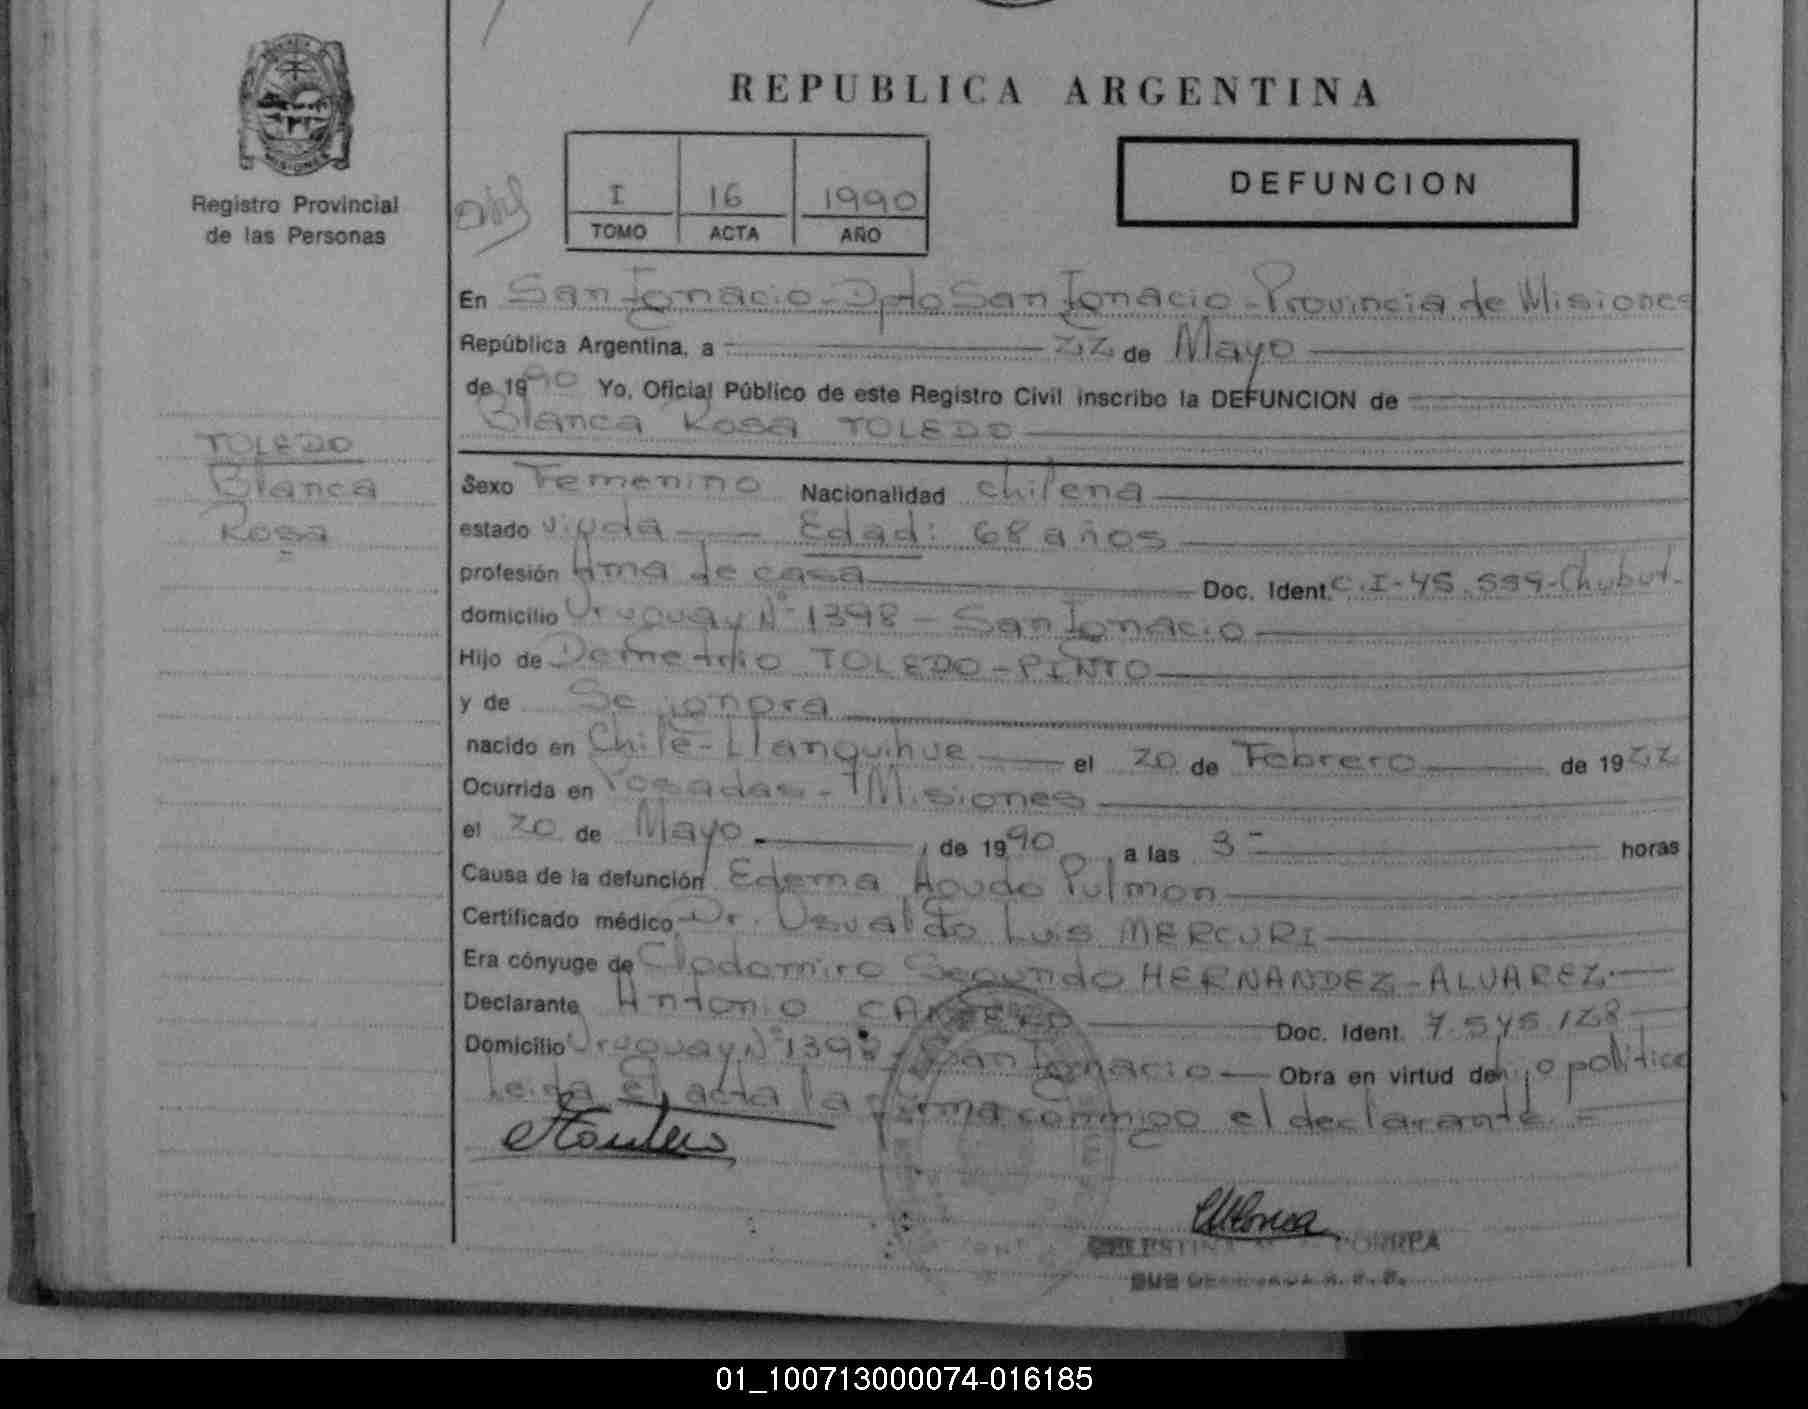 PROVINCIA
MISIONES
Registro Provincial
de las Personas
TOLEDO
Blanca
Rosa
REPUBLICA ARGENTINA
I 16 1990
TOMO ACTA AÑO
DEFUNCION
En San Ignacio - Dpto San Ignacio - Provincia de Misiones
República Argentina, a 22 de Mayo
de 1990 Yo, Oficial Público de este Registro Civil inscribo la DEFUNCION de
Blanca Rosa TOLEDO
Sexo Femenino Nacionalidad chilena
estado viuda Edad: 68 años
profesión Ama de casa Doc. Ident. C.I-45.599-Chubut.
domicilio Uruguay Nº 1398 - San Ignacio
Hijo de Demetrio TOLEDO-PINTO
y de Se ignora
nacido en Chile - Llanquihue el 20 de Febrero de 1922
Ocurrida en Posadas - Misiones
el 20 de Mayo, de 1990, a las 3 horas
Causa de la defunción Edema Agudo Pulmon
Certificado médico Dr. Osvaldo Luis MERCURI
Era cónyuge de Clodomiro Segundo HERNANDEZ-ALVAREZ
Declarante Antonio Doc. Ident. 7.545.128
Domicilio Uruguay Nº 1398 - San Ignacio Obra en virtud de hijo politico
Leida el acta la firma conmigo el declarante =
CELESTINA CORREA
SUB
01_100713000074-016185